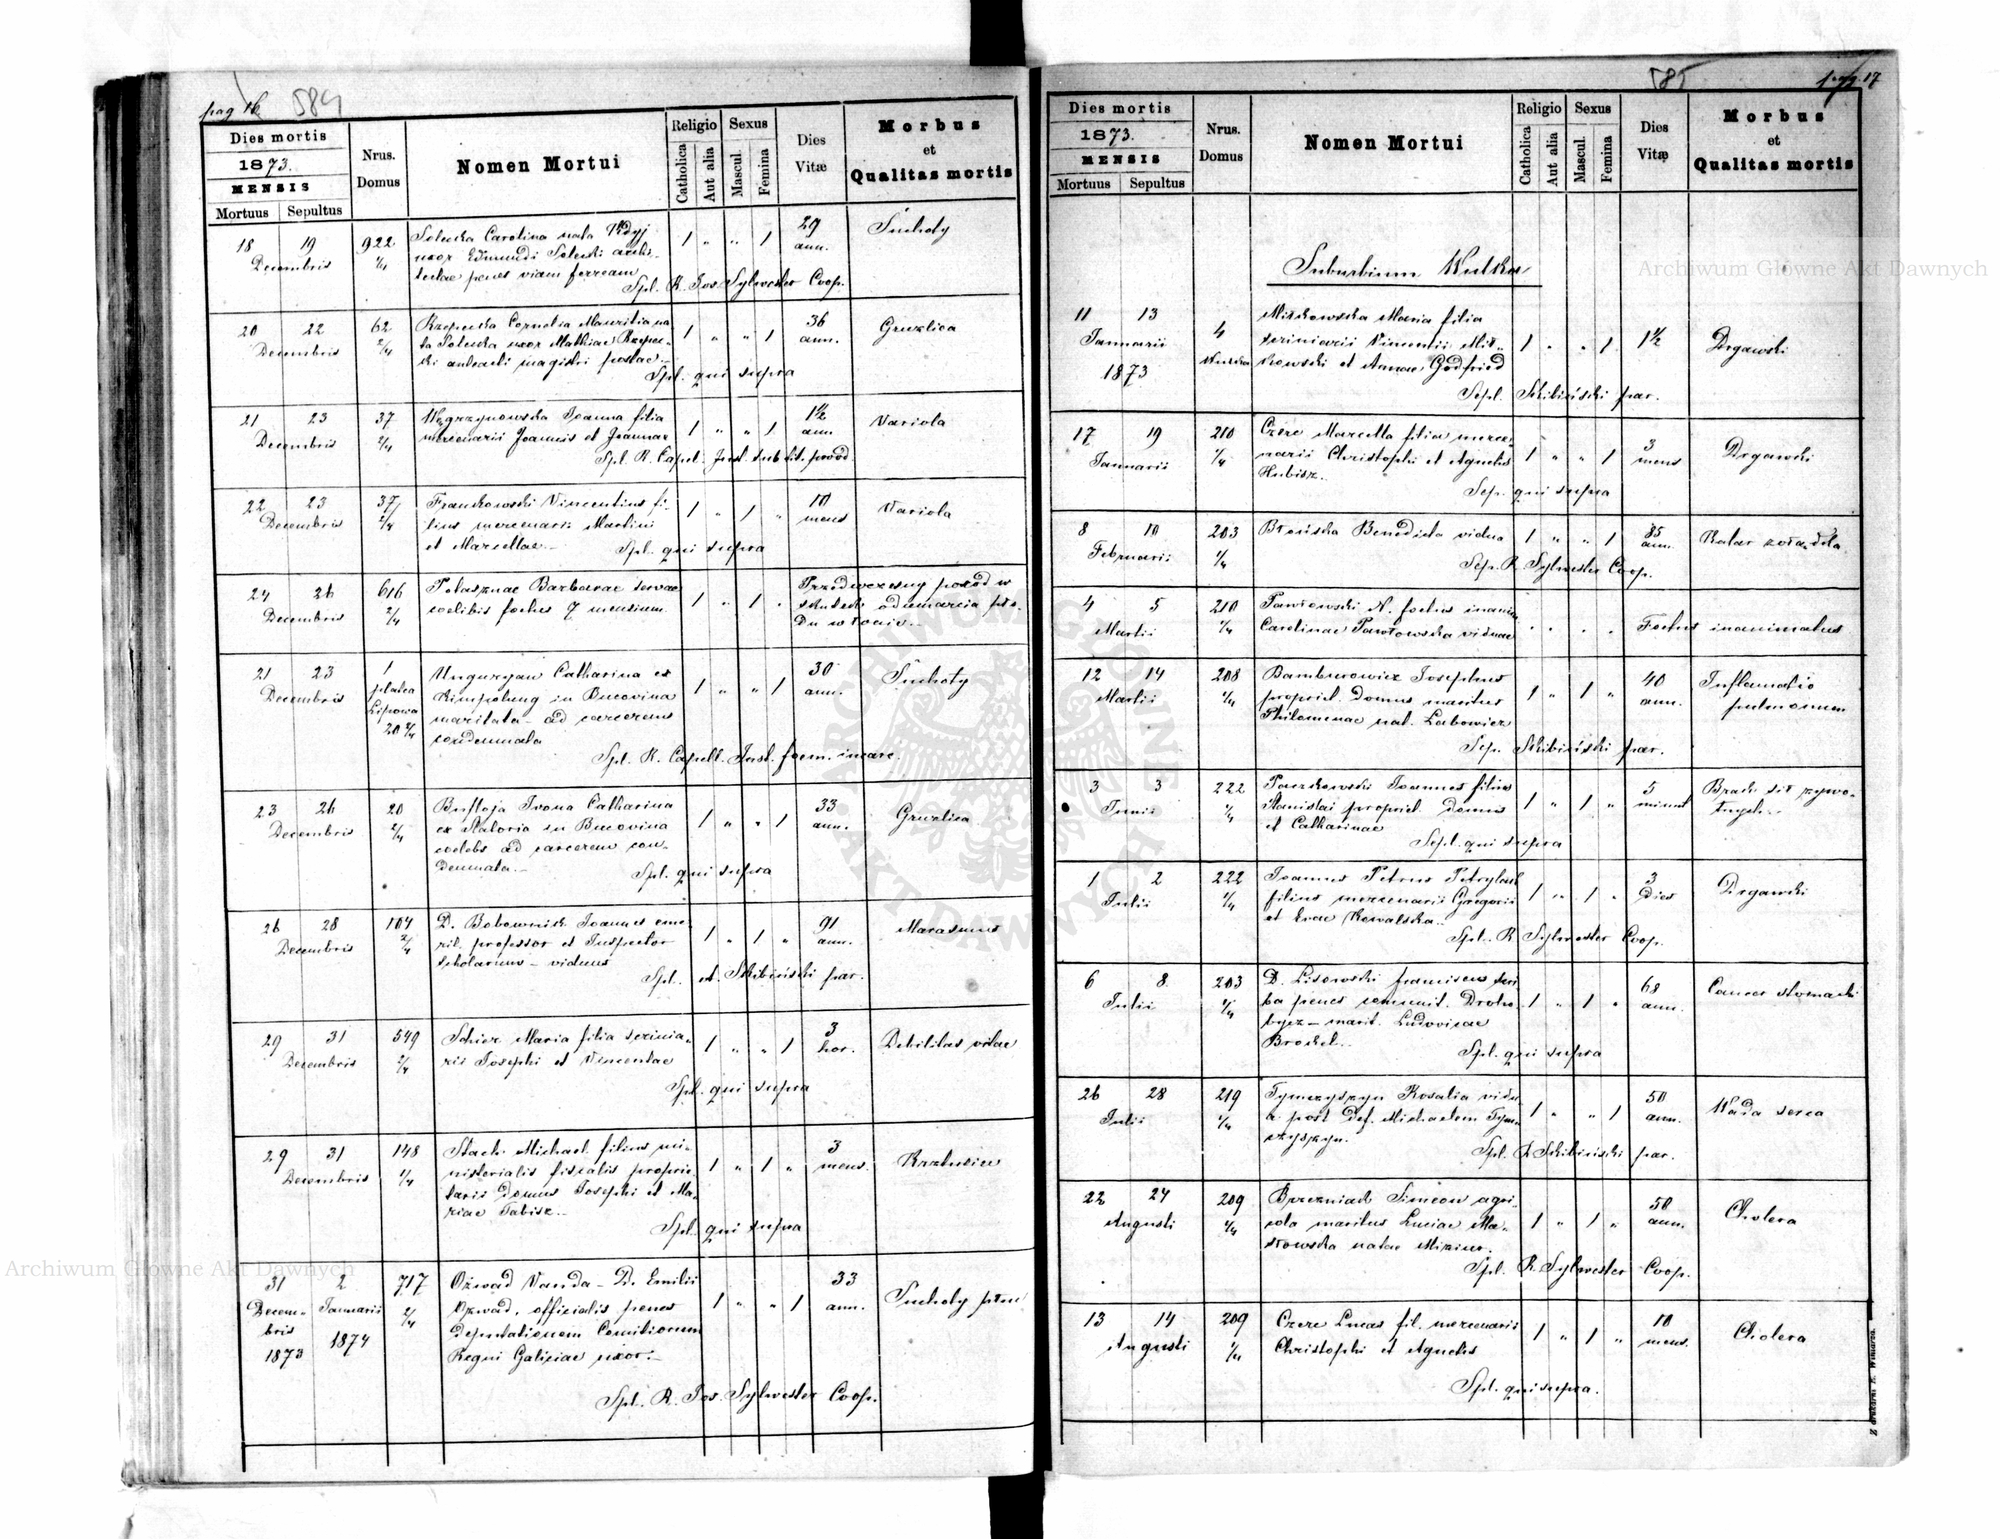 pag 16. 584
Dies mortis
1873.
MENSIS
Mortuus Sepultus
Nrus. Domus
Nomen Mortui
Religio
Catholica
Aut alia
Sexus
Mascul.
Femina
Dies Vitæ
Morbus
et
Qualitas mortis
18 19 922 Solecka Carolina nata 1 „ „ 1 29 Suchoty
Decembris 1/4 uxor Edmundi Solecki archi- ann.
tectae penes viam ferream
Spl. R. Jos. Sylwester Coop.
20 22 62 Rzepecka Cornelia Mauritia na- 1 „ „ 1 36 Gruzlica
Decembris 2/4 ta Solecka uxor Mathiae Rzepec- ann.
ki magistri postae
Spl. qui supra
21 23 37 Węgrzynowska Joanna filia 1 „ „ 1 1½ Variola
Decembris 2/4 mercenarii Joannis et Joannae ann.
Spl. R. Capel. Inst. sub tit. prov.
22 23 37 Frankowski Vincentius fi- 1 „ 1 „ 10 Variola
Decembris 2/4 lius mercenarii Martini mens
et Marcellae
Spl. qui supra
24 26 616 Barbarae servae 1 „ 1 „ Przedwczesny poród w
Decembris 2/4 coelibis foetus 7 mensium skutek odumarcia pło-
du w łonie
21 23 1 Unguryan Catharina ex 1 „ „ 1 30 Suchoty
Decembris platea Kimpolung in Bucovina ann.
Lipowa maritata – ad carcerem
20 2/4 condemnata
Spl. R. Capell. Inst. foem. incarc.
23 26 20 Catharina 1 „ „ 1 33 Gruzlica
Decembris 2/4 ex in Bucovina ann.
coelebs ad carcerem con-
demnata
Spl. qui supra
26 28 104 D. Bobownik Joannes eme- 1 „ 1 „ 91 Marasmus
Decembris 2/4 rit. professor et Inspector ann.
scholarum – viduus
Spl. Skibiński par.
29 31 549 Schier Maria filia scrinia- 1 „ „ 1 3 Debilitas vitae
Decembris 2/4 rii Josephi et Vincentae hor.
Spl. qui supra
29 31 148 Stach Michael filius mi- 1 „ 1 „ 3
Decembris 1/4 nisterialis fiscalis proprie- mens.
tarii domus Josephi et Ma-
riae Tabisz
Spl. qui supra
31 2 717 Ożwad Vanda – D. Emilii 1 „ „ 1 33 Suchoty płuc
Decem- Januarii 2/4 Ożwad, officialis penes ann.
bris 1874 Deputationem Comitiorum
1873 Regni Galiciae uxor.
Spl. R. Jos. Sylwester Coop.
585 pag. 17
Dies mortis
1873.
MENSIS
Mortuus Sepultus
Nrus. Domus
Nomen Mortui
Religio
Catholica
Aut alia
Sexus
Mascul.
Femina
Dies Vitæ
Morbus
et
Qualitas mortis
Suburbium Wulka
11 13 4 Mitkowska Maria filia 1 „ „ 1 1½ Drgawki
Januarii Wulka scriniarii Vincentii Mit-
1873 kowski et Annae Godfried
Sepl. Skibiński par.
17 19 210 Czerc Marcella filia merce- 1 „ „ 1 3 Drgawki
Januarii 1/4 narii Christophi et Agnetis mens
Hubisz.
Sep. qui supra
8 10 203 Benedicta vidua 1 „ „ 1 85 Katar żołądka
Februarii 1/4 ann.
Sep. R. Sylwester Coop.
4 5 210 Pawłowski N. foetus inanim. „ „ „ „ Foetus inanimatus
Martii 1/4 Carolinae Pawłowska viduae
12 14 208 Bamburowicz Josephus 1 „ 1 „ 40 Inflamatio
Martii 1/4 propriet. domus maritus ann. pulmonum
Philomenae nat. Labowicz
Sep. Skibiński par.
3 3 222 Paczkowski Joannes filius 1 „ 1 „ 5 Brak sił żywo-
Junii 1/4 Stanislai propriet. domus minut tnych
et Catharinae
Sepl. qui supra
1 2 222 Joannes Petrus Petrylak 1 „ 1 „ 3 Drgawki
Julii 1/4 filius mercenarii Gregorii dies
et Evae Kowalska
Spl. R. Sylwester Coop.
6 8 203 D. Lisowski Franciscus scri- 1 „ 1 „ 68 Cancer stomachi
Julii 1/4 ba penes communit. Droho- ann.
bycz – marit. Ludovicae
Brockel
Spl. qui supra
26 28 219 Tymczyszyn Rosalia vidu- 1 „ „ 1 50 Wada serca
Julii 1/4 a post def. Michaelem Tym- ann.
czyszyn.
Spl. Skibiński par.
22 24 209 Brzezniak Simeon agri- 1 „ 1 „ 50 Cholera
Augusti 1/4 cola maritus Luciae Ma- ann.
słowska natae
Spl. R. Sylwester Coop.
13 14 209 Czerc Lucas fil. mercenarii 1 „ 1 „ 10 Cholera
Augusti 1/4 Christophi et Agnetis mens.
Spl. qui supra.
Z drukarni E. Winiarza.
Archiwum Główne Akt Dawnych
Archiwum Główne Akt Dawnych
ARCHIWUM GŁÓWNE AKT DAWNYCH